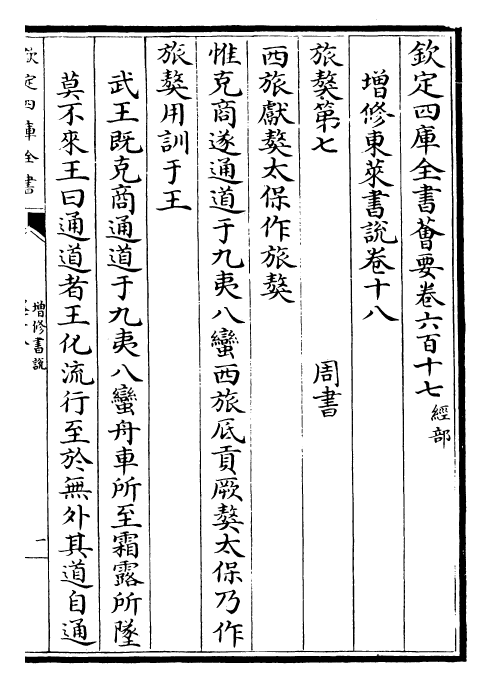 欽定四庫全書薈要卷六百十七經部
增修東萊書說卷十八
旅獒第七　周書
西旅獻獒太保作旅獒
惟克商遂通道于九夷八蠻西旅厎貢厥獒太保乃作
旅獒用訓于王
武王既克商通道于九夷八蠻舟車所至霜露所墜
莫不來王曰通道者王化流行至於無外其道自通
欽定四庫全書
增修書說
一